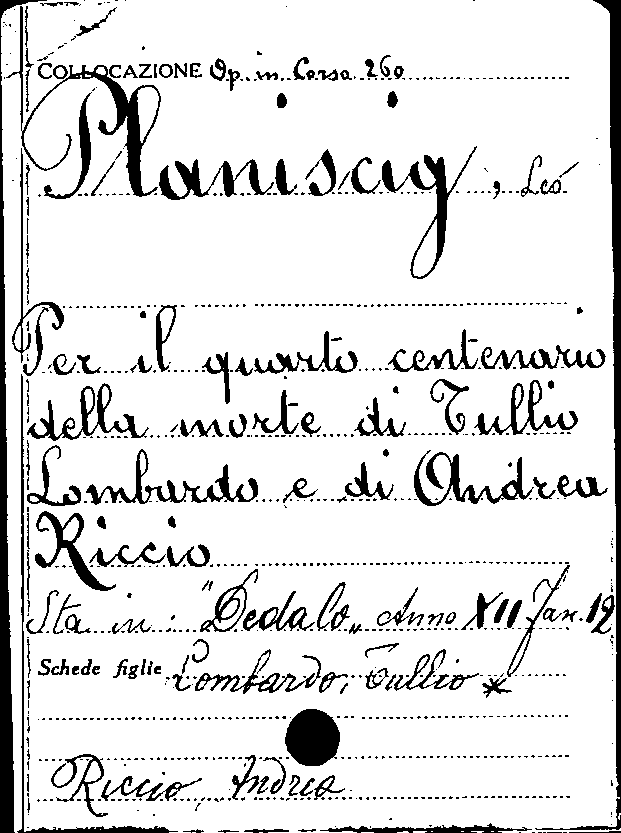 COLLOCAZIONE Op. in Corso 260
Planiscig, Leo
Per il quarto centenario
della morte di Tullio
Lombardo e di Andrea
Riccio
Sta in: "Dedalo„ Anno XII Fasc. 12
Schede figlie Lombardo, Tullio *
Riccio, Andrea